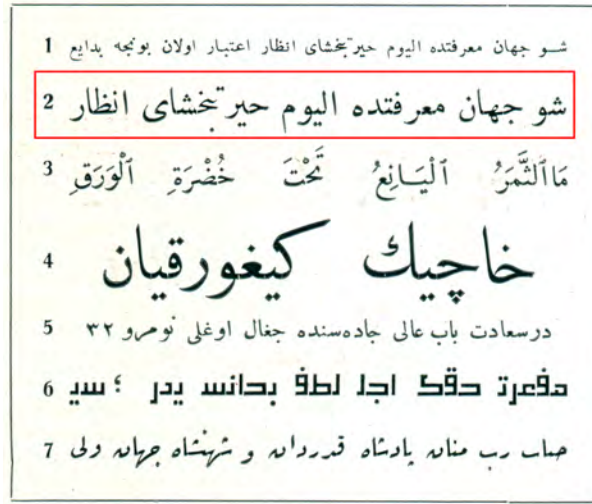 شو جهان معرفتده اليوم حيرتبخشاى انظار اعتبار اولان بونجه بدايع 1
شو جهان معرفتده اليوم حيرتبخشاى انظار 2
مَاالثَّمَرُ ٱلْيَـانِعُ تَحْتَ خُضْرَةِ ٱلْوَرَقِ 3
خاچيك كيغورقيان 4
درسعادت باب عالى جاده‌سنده جغال اوغلى نومرو ٣٢ 5
6
رب منان پادشاه قدردان و شهنشاه جهان ولى 7